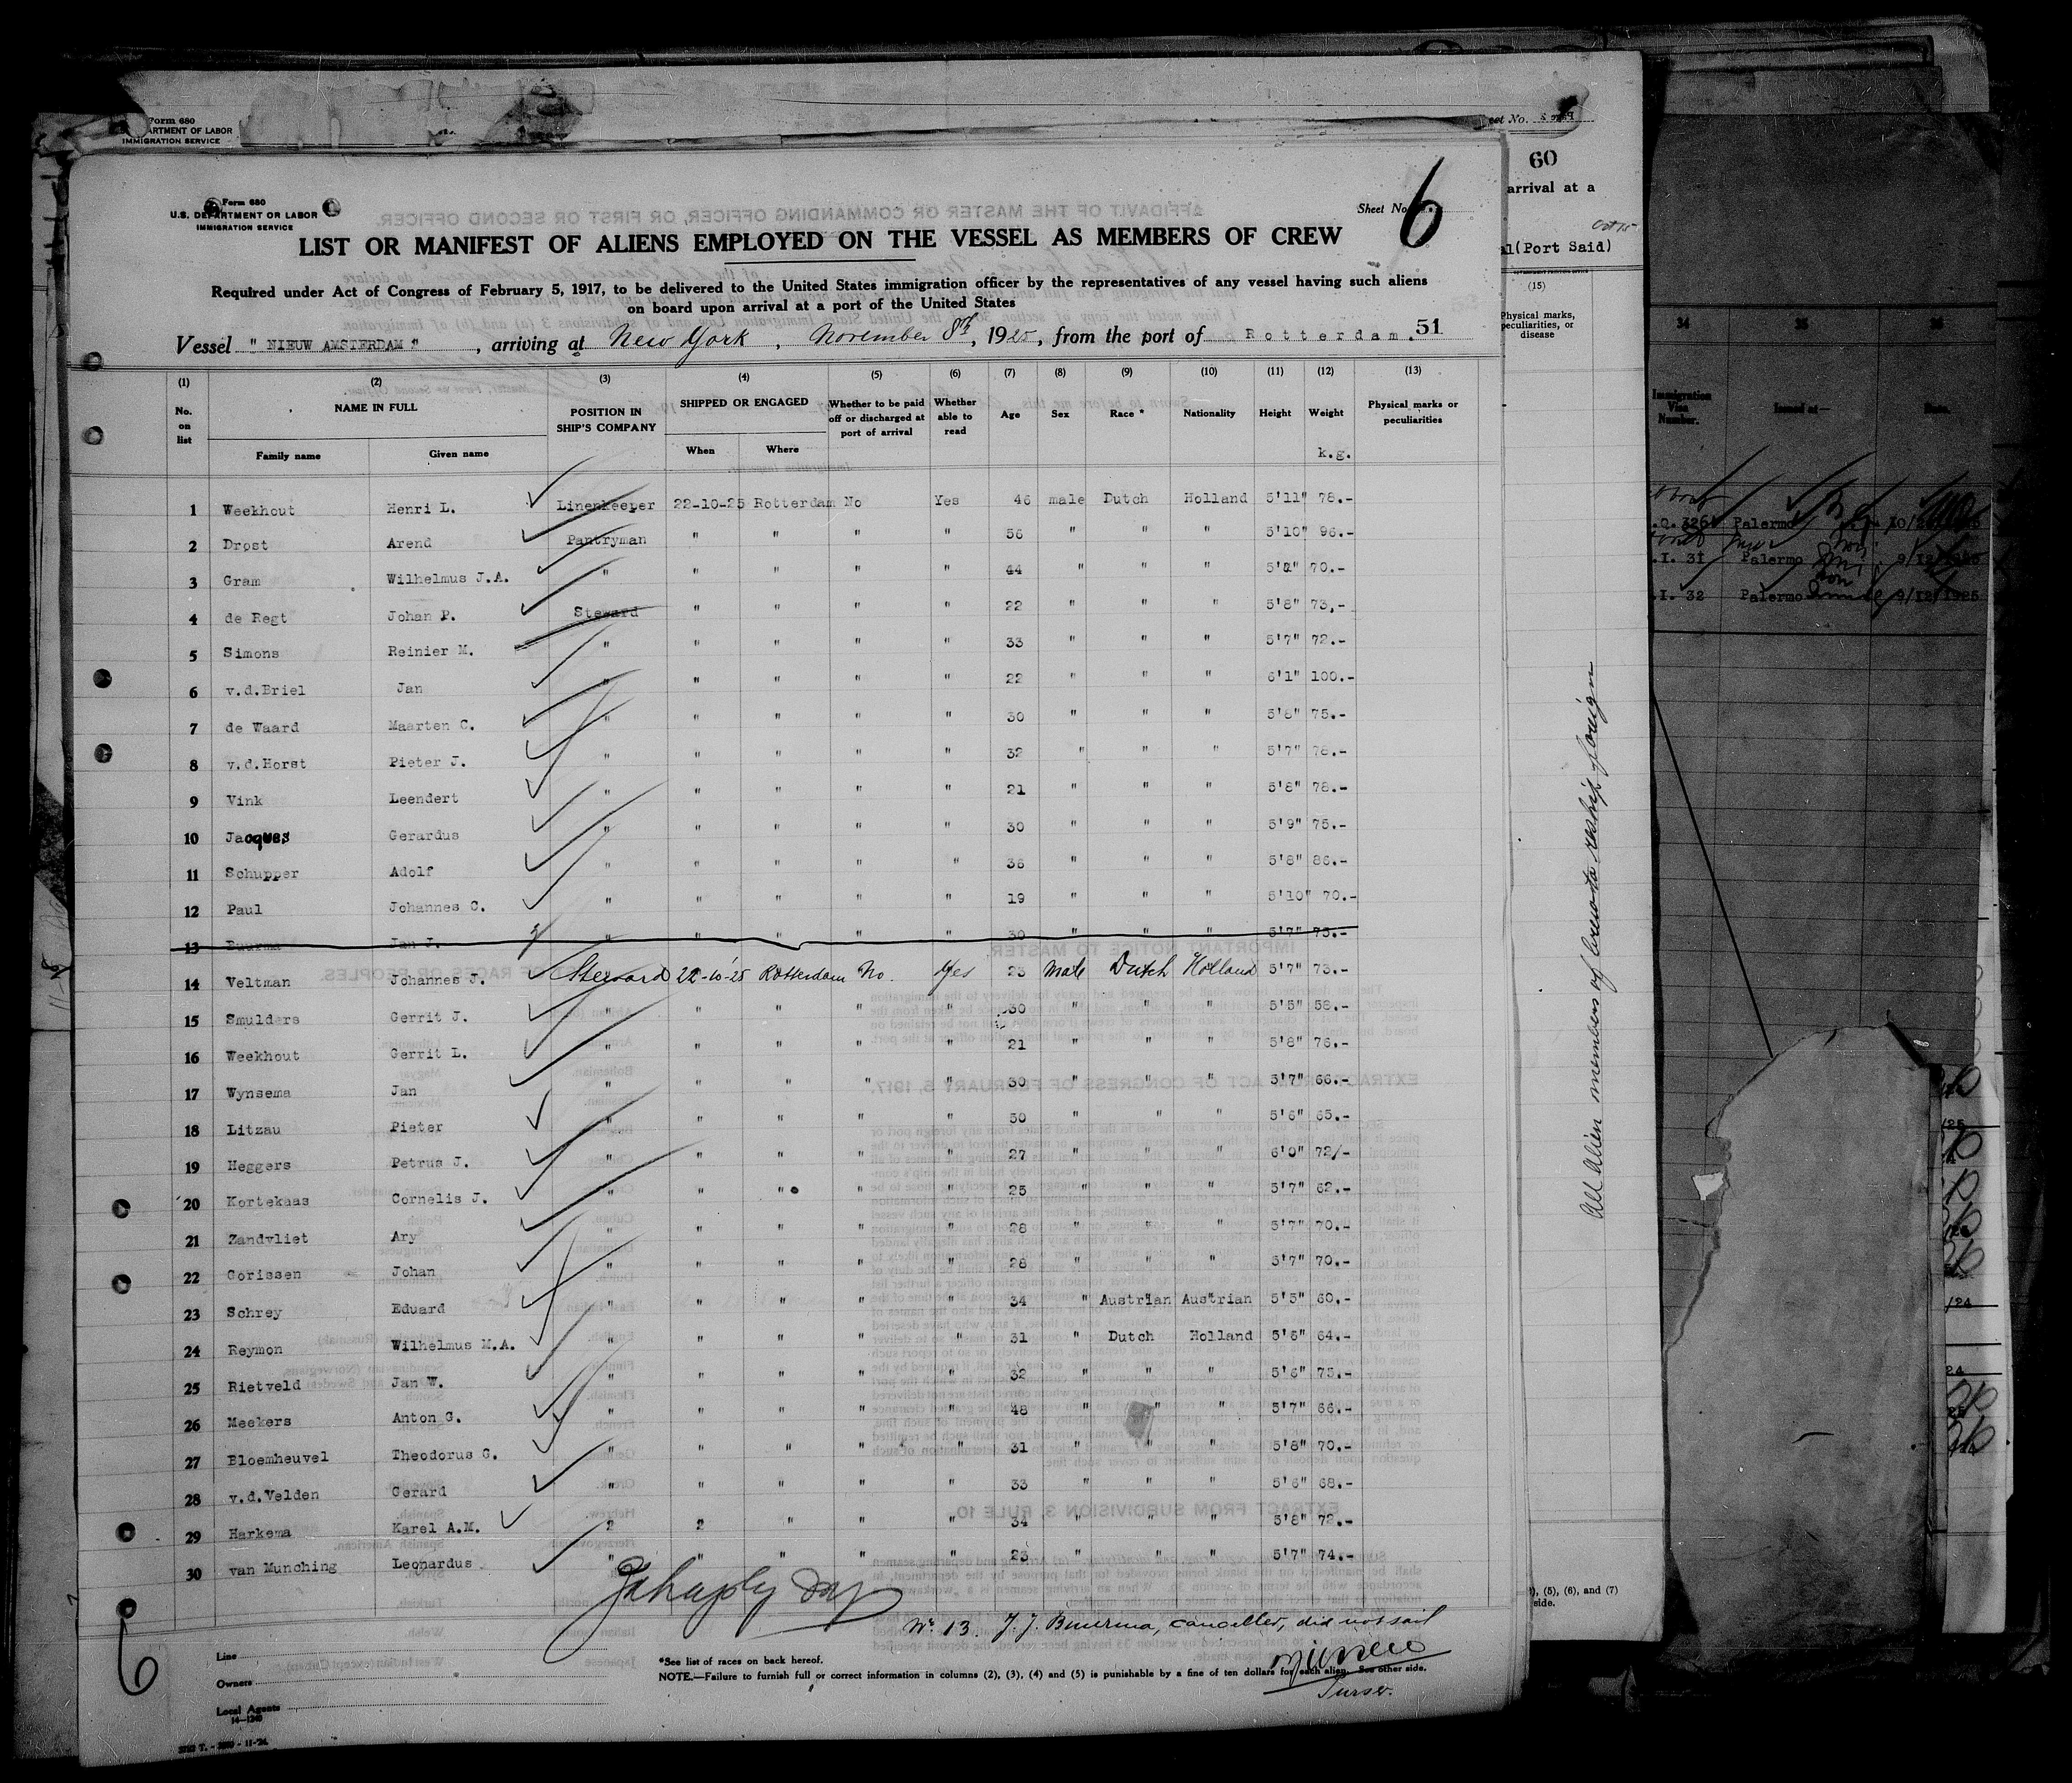 Form 680
ARTMENT OF LABOR
IMMIGRATION SERVICE
60
arrival at a
al(Port Said)
(15)
Physical marks,
peculiarities, or
disease
Form 680
U.S. DEPARTMENT OR LABOR
IMMIGRATION SERVICE
Sheet No. 6
LIST OR MANIFEST OF ALIENS EMPLOYED ON THE VESSEL AS MEMBERS OF CREW
Required under Act of Congress of February 5, 1917, to be delivered to the United States immigration officer by the representatives of any vessel having such aliens
on board upon arrival at a port of the United States
Vessel " NIEUW AMSTERDAM ", arriving at New York, November 8th, 1925, from the port of Rotterdam. 51
(1) (2) (3) (4) (5) (6) (7) (8) (9) (10) (11) (12) (13)
No. on list NAME IN FULL POSITION IN SHIP'S COMPANY SHIPPED OR ENGAGED Whether to be paid off or discharged at port of arrival Whether able to read Age Sex Race * Nationality Height Weight Physical marks or peculiarities
Family name Given name When Where k.g.
1 Weekhout Henri L. Linenkeeper 22-10-25 Rotterdam No Yes 46 male Dutch Holland 5'11" 78.-
2 Drost Arend Pantryman " " " " 56 " " " 5'10" 96.-
3 Gram Wilhelmus J.A. " " " " " 44 " " " 70.-
4 de Regt Johan P. Steward " " " " 22 " " " 5'8" 73,-
5 Simons Reinier M. " " " " " 33 " " " 5'7" 72.-
6 v.d.Briel Jan " " " " " 22 " " " 6'1" 100.-
7 de Waard Maarten C. " " " " " 30 " " " 75.-
8 v.d.Horst Pieter J. " " " " " 32 " " " 5'7" 78.-
9 Vink Leendert " " " " " 21 " " " 5'8" 78.-
10 Jacques Gerardus " " " " " 30 " " " 5'9" 75.-
11 Schupper Adolf " " " " " 36 " " " 5'8" 86.-
12 Paul Johannes C. " " " " " 19 " " " 5'10" 70.-
13 Buurma Jan J. " " " " " 30 " " " 5'7" 75.-
14 Veltman Johannes J. Steward 22-10-25 Rotterdam No. Yes 23 Male Dutch Holland 5'7" 73.-
15 Smulders Gerrit J. " " " " " 30 " " " 5'5" 58.-
16 Weekhout Gerrit L. " " " " " 21 " " " 5'8" 76.-
17 Wynsema Jan " " " " " 30 " " " 5'7" 66.-
18 Litzau Pieter " " " " " 50 " " " 5'6" 65.-
19 Heggers Petrus J. " " " " " 27 " " " 6'0" 72/-
20 Kortekaas Cornelis J. " " " " " 25 " " " 5'7" 62.-
21 Zandvliet Ary " " " " " 28 " " " 5'7" 70.-
22 Gorissen Johan " " " " " 28 " " " 5'7" 70.-
23 Schrey Eduard " " " " " 34 " Austrian Austrian 5'5" 60.-
24 Reymon Wilhelmus M.A. " " " " " 31 " Dutch Holland 64.-
25 Rietveld Jan W. " " " " " 32 " " " 5'6" 75.-
26 Meekers Anton G. " " " " " 48 " " " 5'7" 66.-
27 Bloemheuvel Theodorus G. " " " " " 31 " " " 5'8" 70.-
28 v.d.Velden Gerard " " " " " 33 " " " 5'6" 68.-
29 Harkema Karel A.M. 2 2 " " " 34 " " " 5'8" 72.-
30 van Munching Leonardus " " " " " 23 " " " 5'7" 74.-
No 13. J. J. Buurma, cancelled, did not sail
Purser.
Line
Owners
Local Agents
14-1240
*See list of races on back hereof.
NOTE.—Failure to furnish full or correct information in columns (2), (3), (4) and (5) is punishable by a fine of ten dollars for each alien. See other side.
6
All Alien members of crew to reship foreign
(5), (6), and (7)
side.
34 35 36
Immigration Visa Number. Issued at— Date.
Palermo
I. 31 Palermo
I. 32 Palermo 9/12/1925